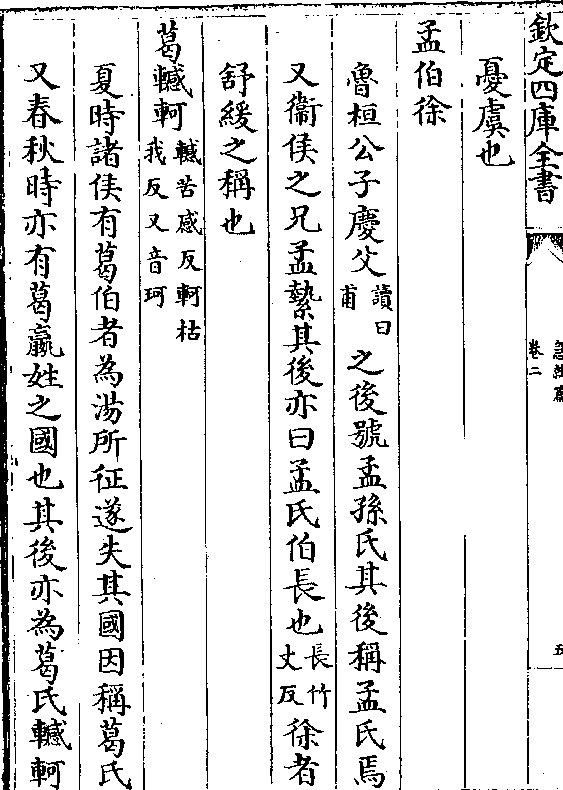 欽定四庫全書
急就篇
卷二
五
憂虞也
孟伯徐
魯桓公子慶父讀曰甫之後號孟孫氏其後稱孟氏焉
又衛侯之兄孟縶其後亦曰孟氏伯長也長竹丈反徐者
舒緩之稱也
葛轗軻轗苦感反軻枯我反又音珂
夏時諸侯有葛伯者為湯所征遂失其國因稱葛氏
又春秋時亦有葛嬴姓之國也其後亦為葛氏轗軻